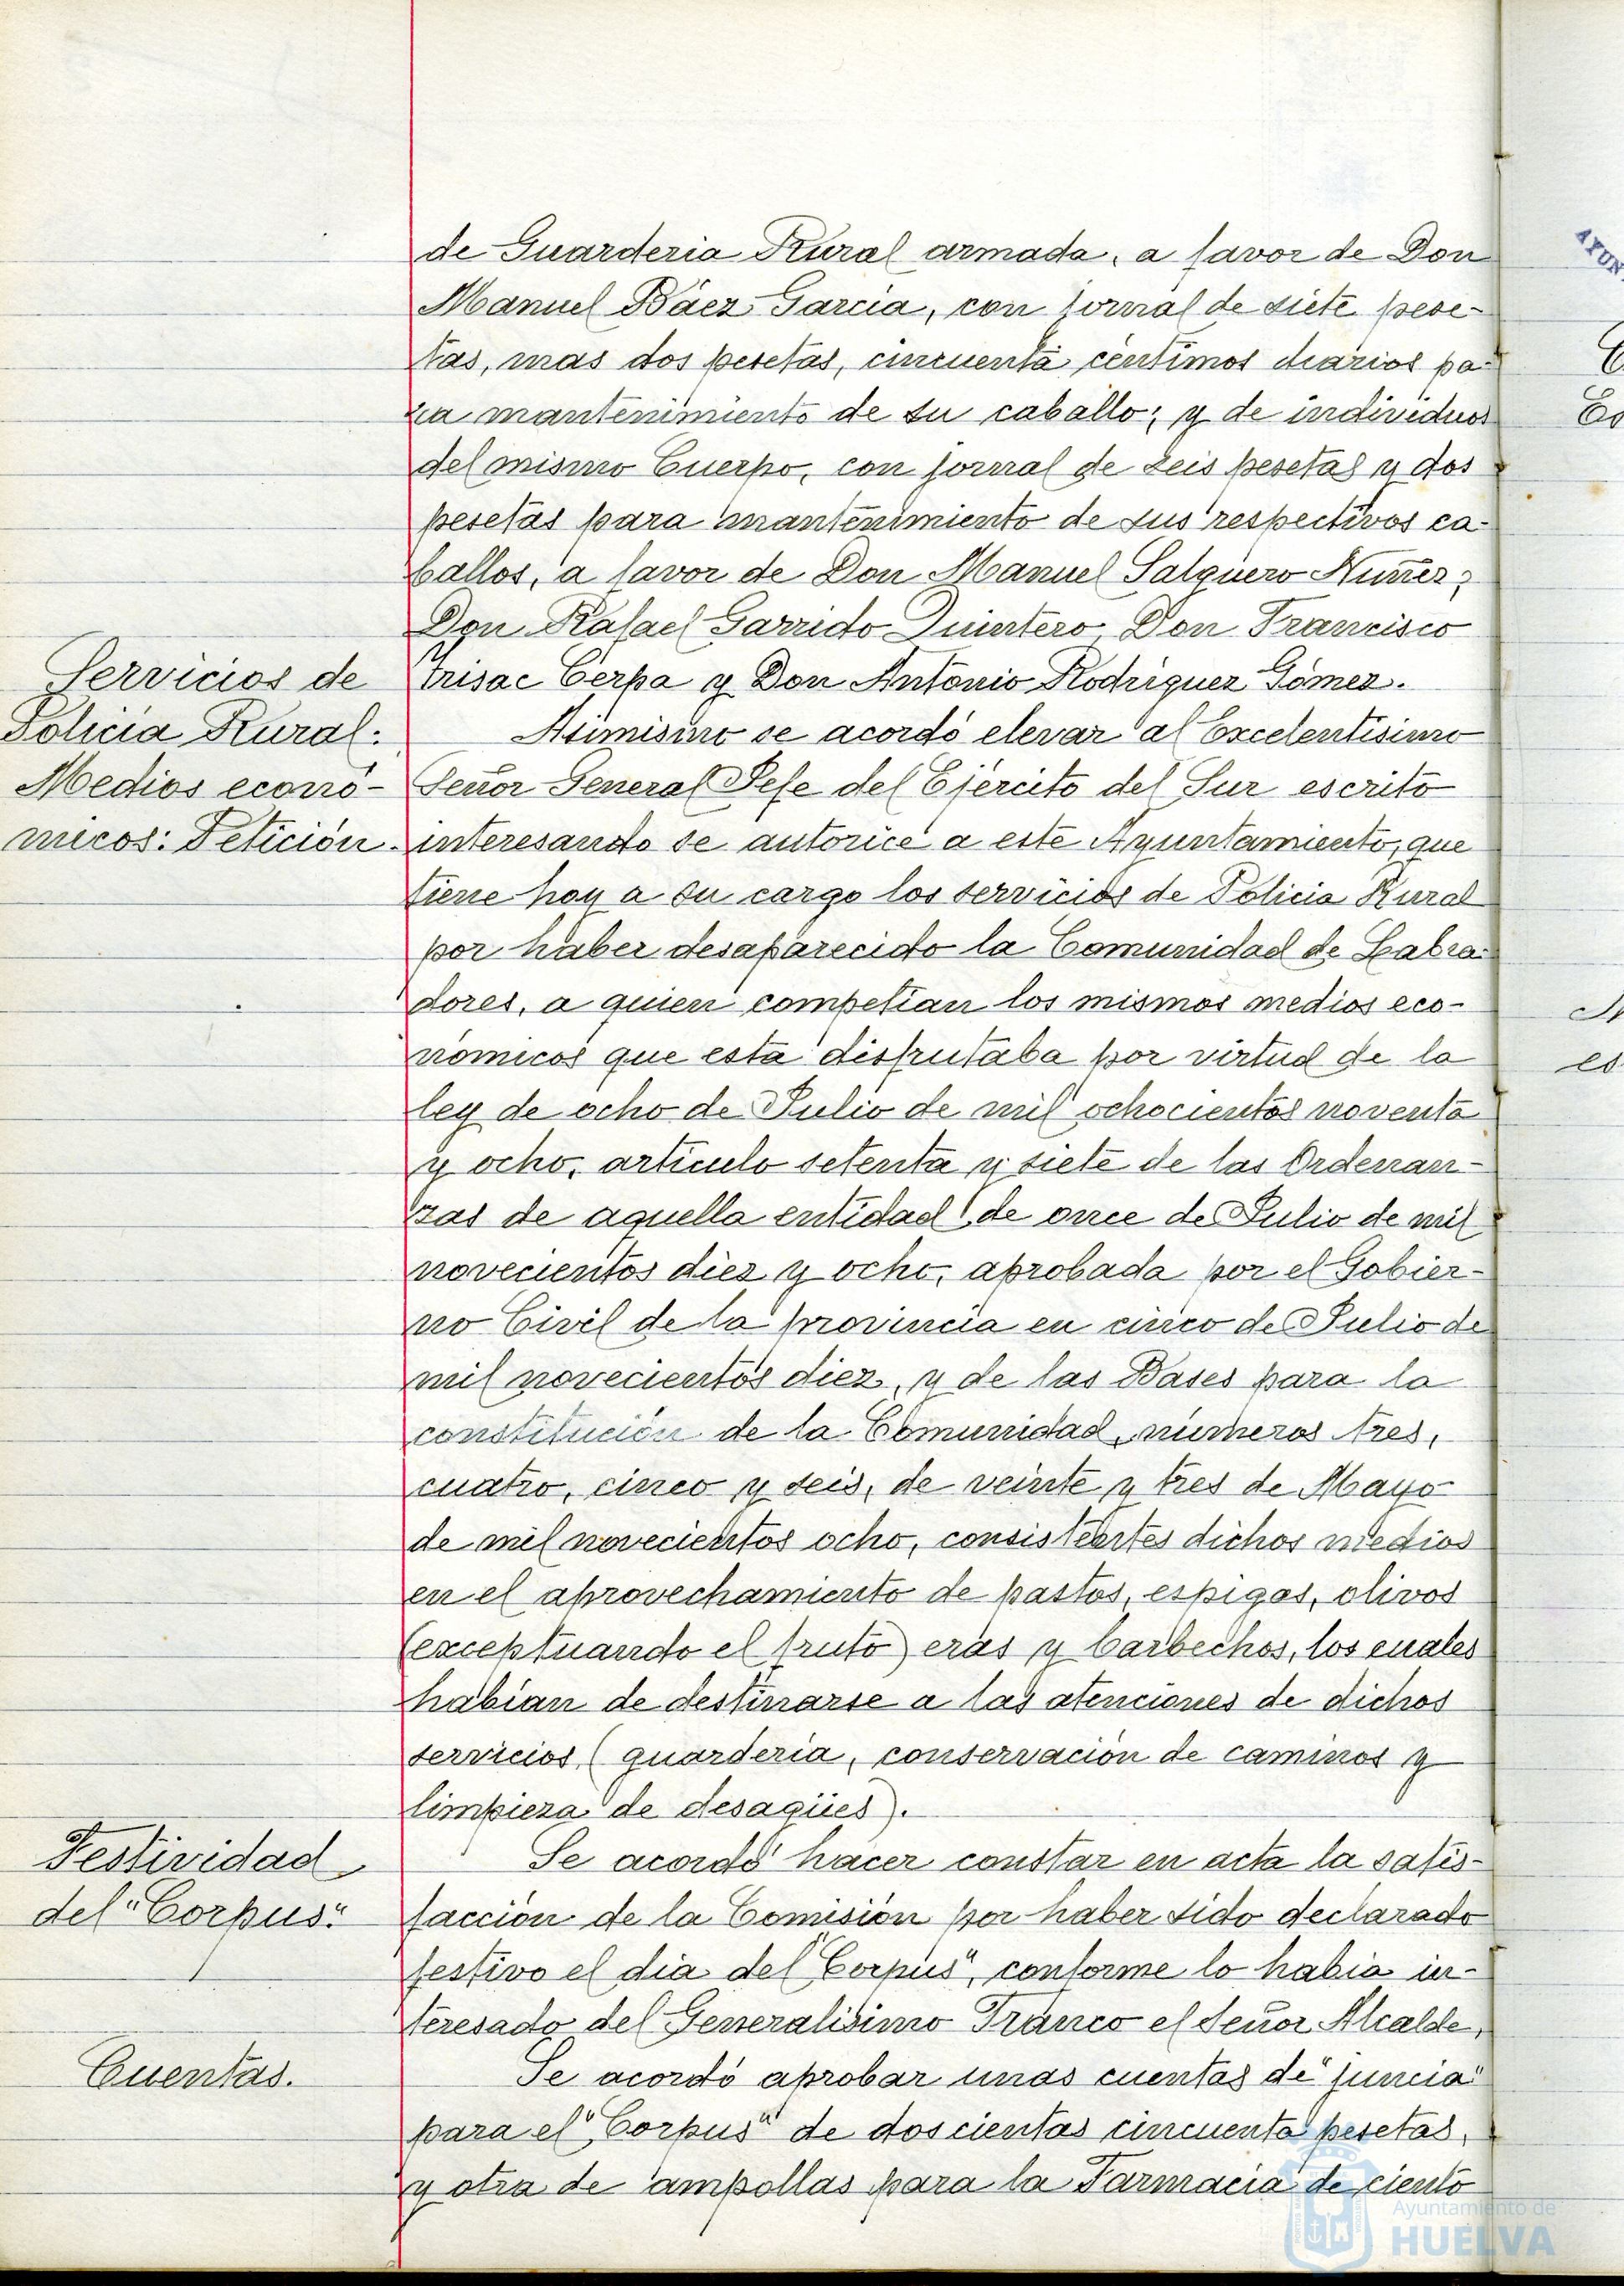 de Guarderia Rural armada, a favor de Don
Manuel Báez Garcia, con jornal de siete pese-
tas, mas dos pesetas, cincuenta centimos diarios pa-
ra mantenimiento de su caballo; y de individuos
del mismo Cuerpo, con jornal de seis pesetas y dos
pesetas para mantenimiento de sus respectivos ca-
ballos, a favor de Don Manuel Salguero Nuñez;
Don Rafael Garrido Quintero, Don Francisco
Cerpa y Don Antonio Rodriguez Gómez.
Servicios de
Policia Rural:
Medios econó-
micos: Petición.
Asimismo se acordó elevar al Excelentisimo
Señor General Jefe del Ejército del Sur escrito
interesando se autorice a este Ayuntamiento, que
tiene hoy a su cargo los servicios de Policia Rural
por haber desaparecido la Comunidad de Labra-
dores, a quien competian los mismos medios eco-
nómicos que esta disfrutaba por virtud de la
ley de ocho de Julio de mil ochocientos noventa
y ocho, articulo setenta y siete de las Ordenan-
zas de aquella entidad de once de Julio de mil
novecientos diez y ocho, aprobada por el Gobier-
no Civil de la provincia en cinco de Julio de
mil novecientos diez, y de las Bases para la
constitución de la Comunidad, números tres,
cuatro, cinco y seis, de veinte y tres de Mayo
de mil novecientos ocho, consistentes dichos medios
en el aprovechamiento de pastos, espigas, olivos
(exceptuando el fruto) eras y barbechos, los cuales
habian de destinarse a las atenciones de dichos
servicios (guarderia, conservación de caminos y
limpieza de desagües).
Festividad
del "Corpus"
Se acordó hacer constar en acta la satis-
facción de la Comisión por haber sido declarado
festivo el dia del "Corpus", conforme lo habia in-
teresado del Generalisimo Franco el Señor Alcalde,
Cuentas.
Se acordó aprobar unas cuentas de "juncia"
para el "Corpus" de doscientas cincuenta pesetas,
y otra de ampollas para la Farmacia de ciento
Ayuntamiento de
HUELVA